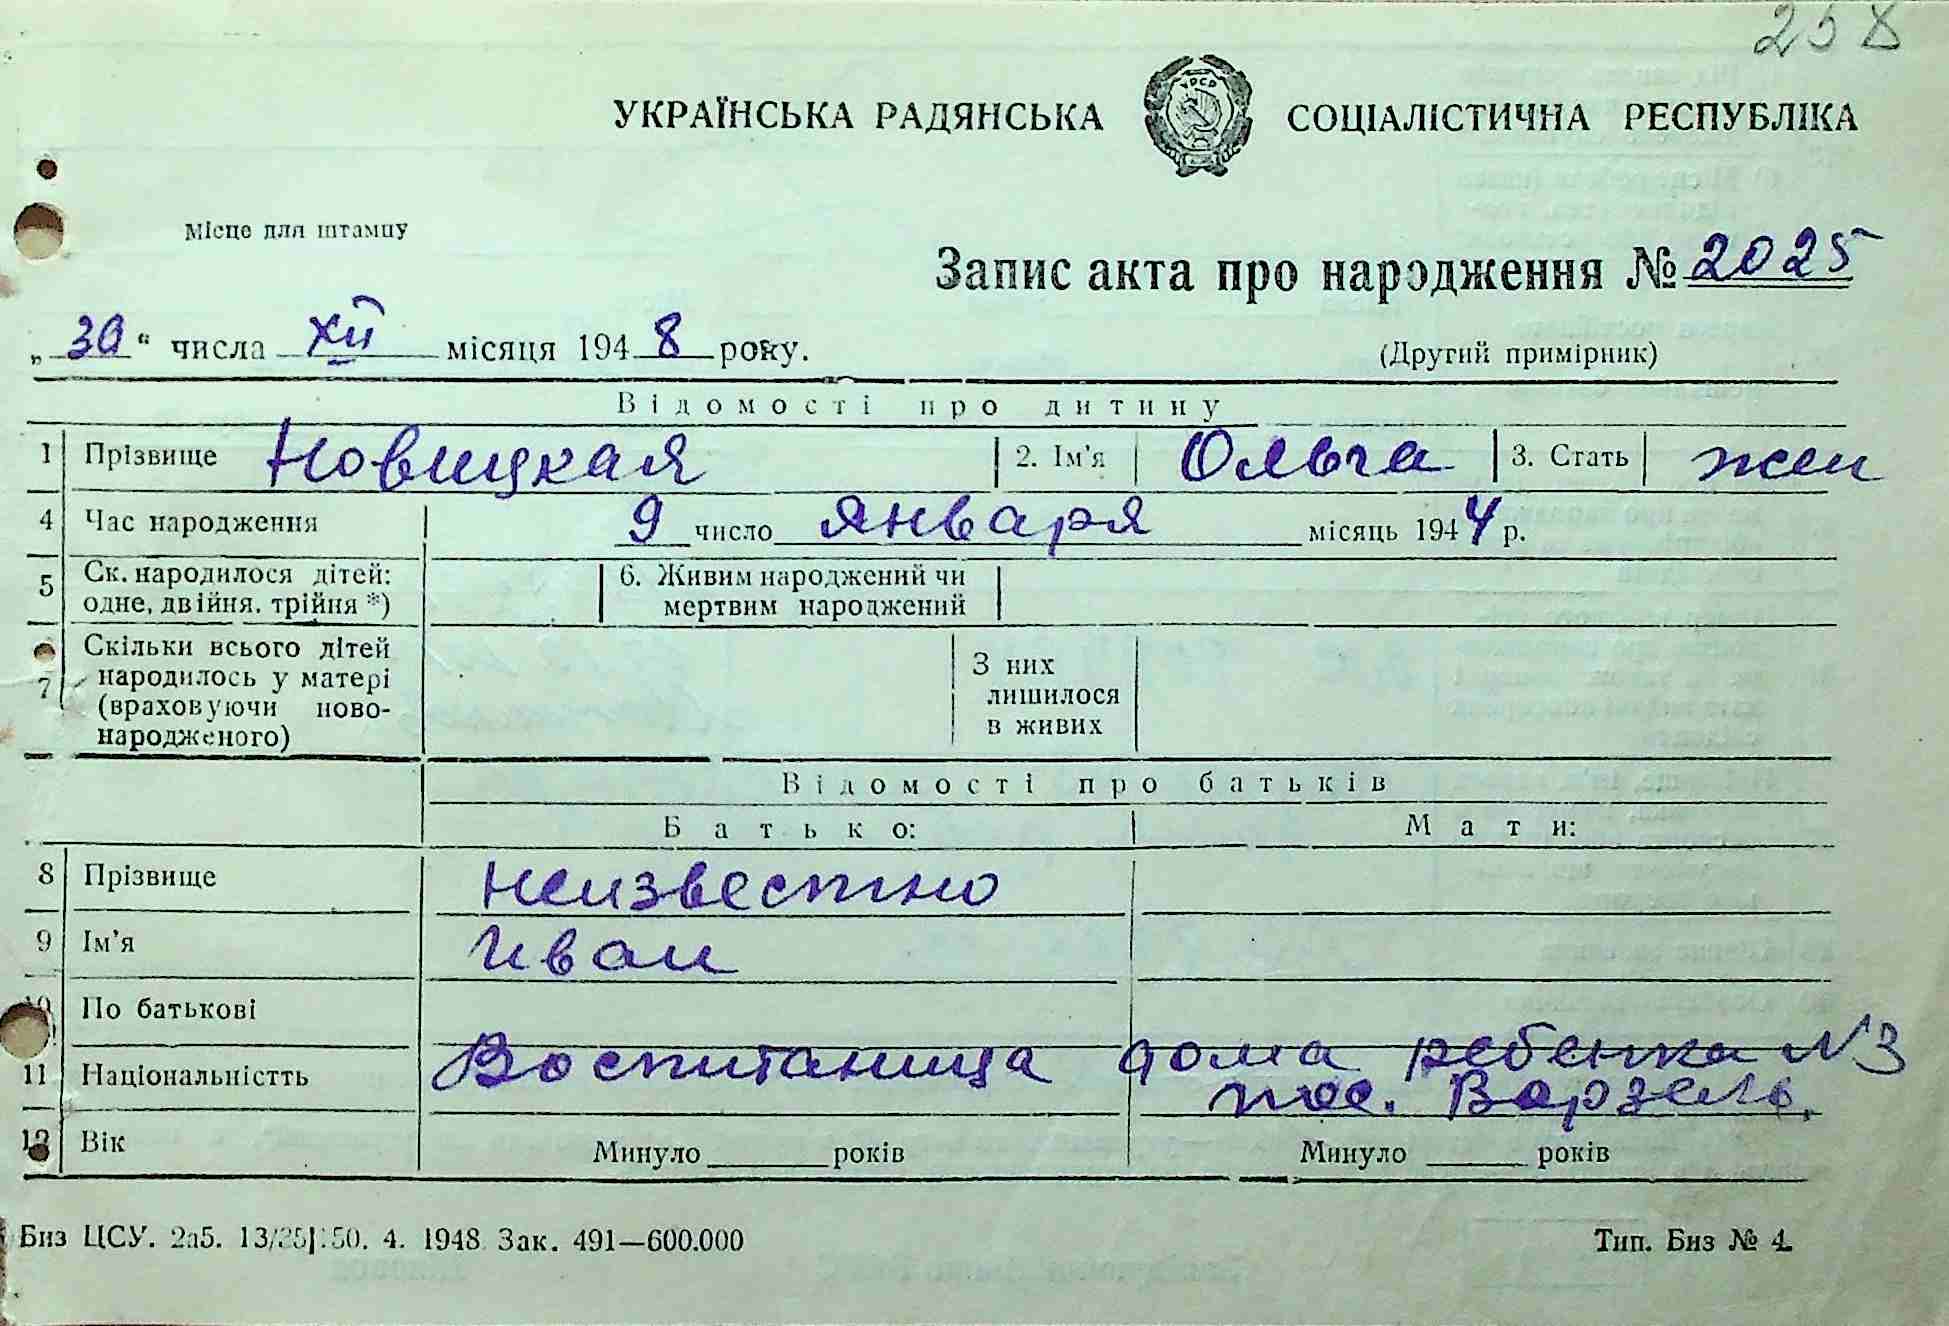 258
УКРАЇНСЬКА РАДЯНСЬКА СОЦІАЛІСТИЧНА РЕСПУБЛІКА
УРСР
Місце для штампу
Запис акта про народження № 2025
„30“ числа XII місяця 1948 року.
(Другий примірник)
Відомості про дитину
1 Прізвище Новицкая 2. Ім'я Ольга 3. Стать жен
4 Час народження 9 число Января місяць 1944 р.
5 Ск. народилося дітей: одне, двійня, трійня *) 6. Живим народжений чи мертвим народжений
7 Скільки всього дітей народилось у матері (враховуючи ново-народженого) З них лишилося в живих
Відомості про батьків
Батько: Мати:
8 Прізвище Неизвестно
9 Ім'я Иван
10 По батькові
11 Національністть Воспитаница дома ребенка №3
пос. Ворзель.
12 Вік Минуло ______ років Минуло ______ років
Биз ЦСУ. 2а5. 13/35 50. 4. 1948 Зак. 491—600.000 Тип. Биз № 4.